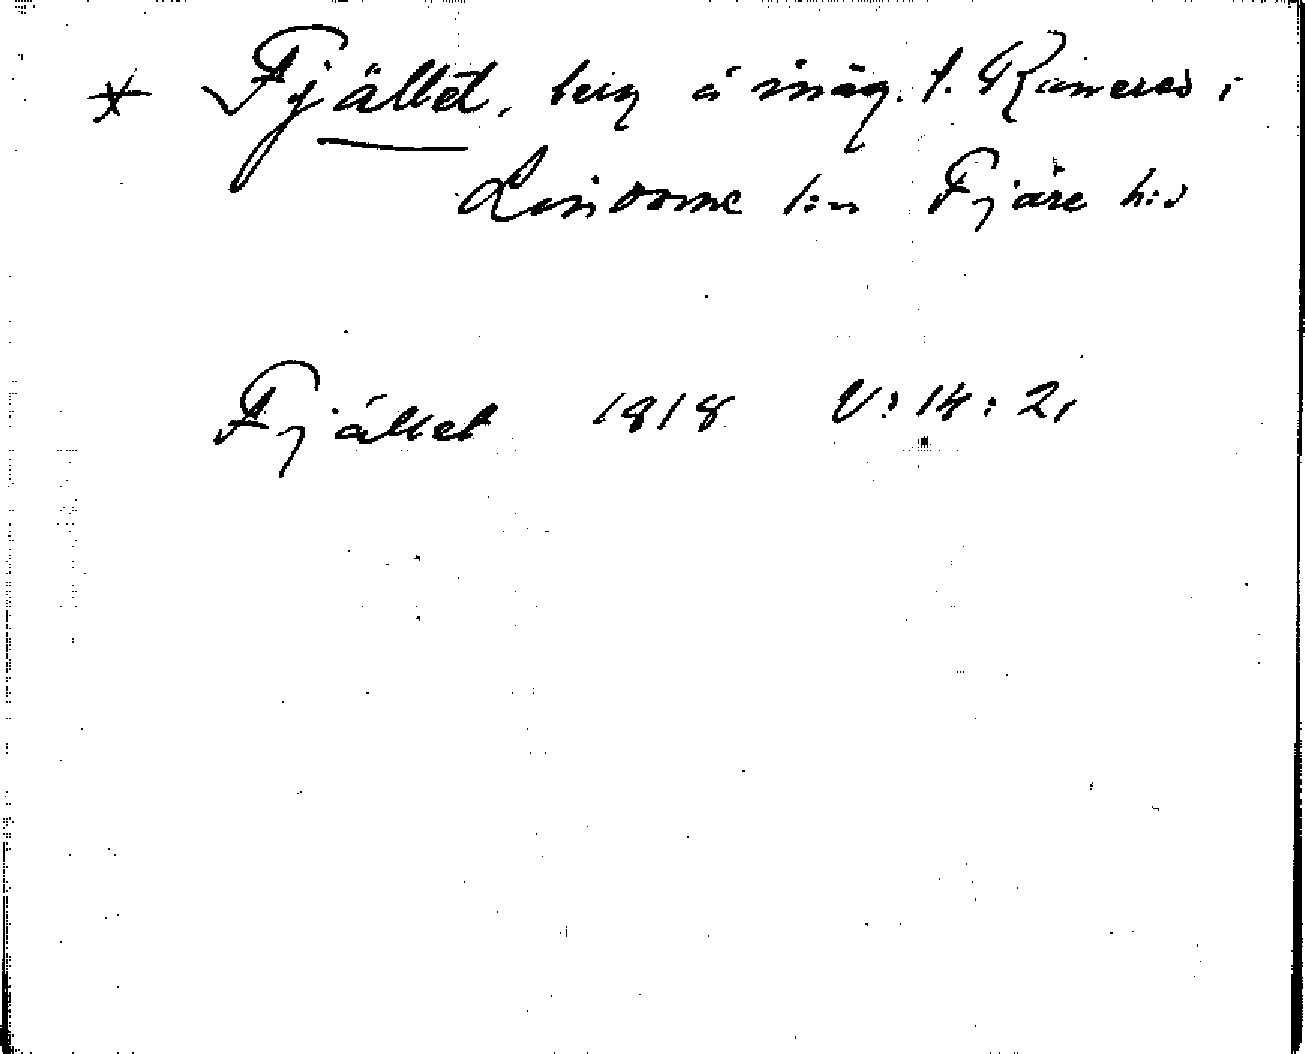 * Fjället, berg å inäg. t. Ramered i
Lindome s:n Fjäre h:d
Fjället 1818 V: 14: 21